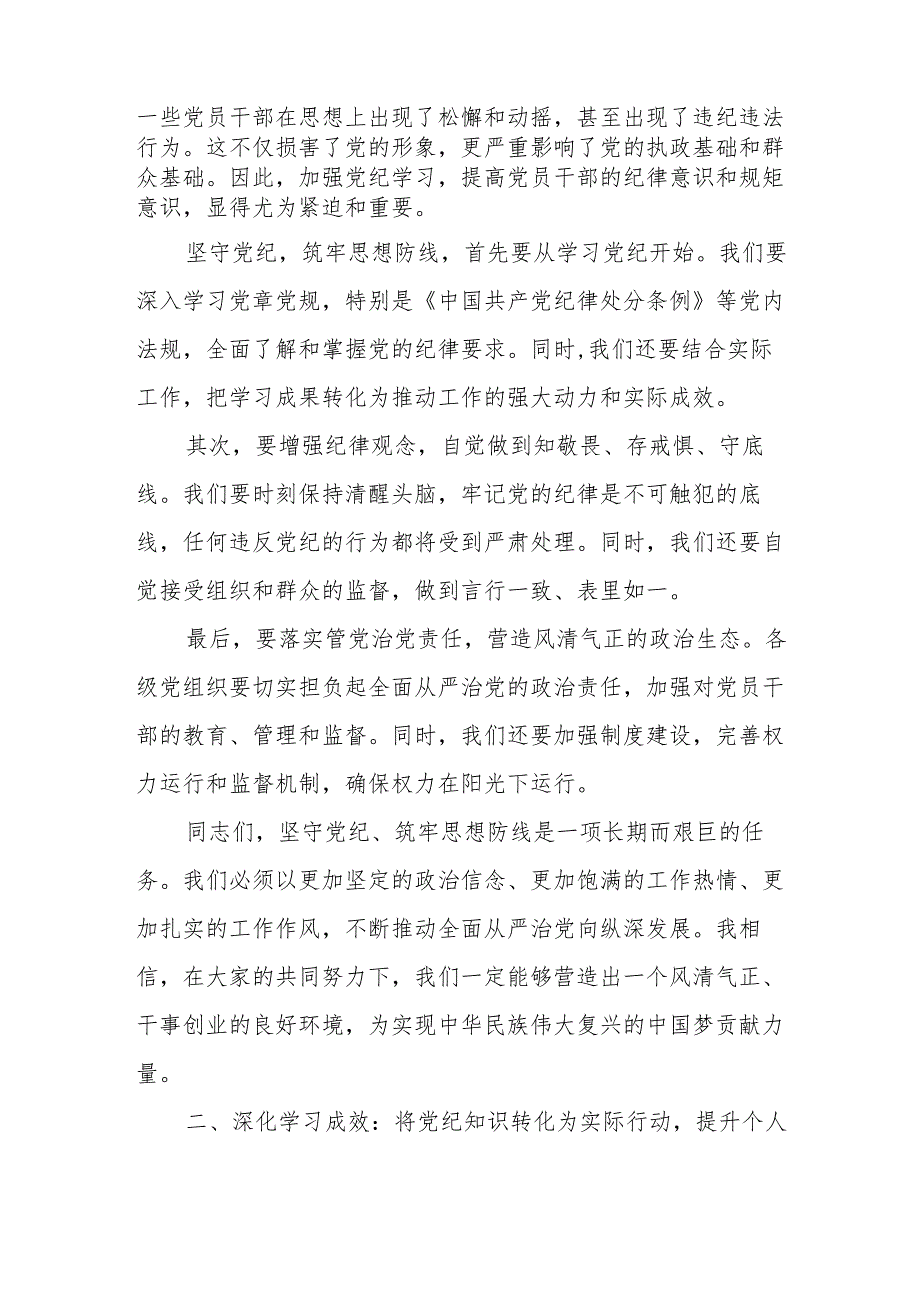 一些党员干部在思想上出现了松懈和动摇，甚至出现了违纪违法
行为。这不仅损害了党的形象，更严重影响了党的执政基础和群
众基础。因此，加强党纪学习，提高党员干部的纪律意识和规矩
意识，显得尤为紧迫和重要。
坚守党纪，筑牢思想防线，首先要从学习党纪开始。我们要
深入学习党章党规，特别是《中国共产党纪律处分条例》等党内
法规，全面了解和掌握党的纪律要求。同时,我们还要结合实际
工作，把学习成果转化为推动工作的强大动力和实际成效。
其次，要增强纪律观念，自觉做到知敬畏、存戒惧、守底
线。我们要时刻保持清醒头脑，牢记党的纪律是不可触犯的底
线，任何违反党纪的行为都将受到严肃处理。同时，我们还要自
觉接受组织和群众的监督，做到言行一致、表里如一。
最后，要落实管党治党责任，营造风清气正的政治生态。各
级党组织要切实担负起全面从严治党的政治责任，加强对党员干
部的教育、管理和监督。同时，我们还要加强制度建设，完善权
力运行和监督机制，确保权力在阳光下运行。
同志们，坚守党纪、筑牢思想防线是一项长期而艰巨的任
务。我们必须以更加坚定的政治信念、更加饱满的工作热情、更
加扎实的工作作风，不断推动全面从严治党向纵深发展。我相
信，在大家的共同努力下，我们一定能够营造出一个风清气正、
干事创业的良好环境，为实现中华民族伟大复兴的中国梦贡献力
量。
二、深化学习成效：将党纪知识转化为实际行动，提升个人